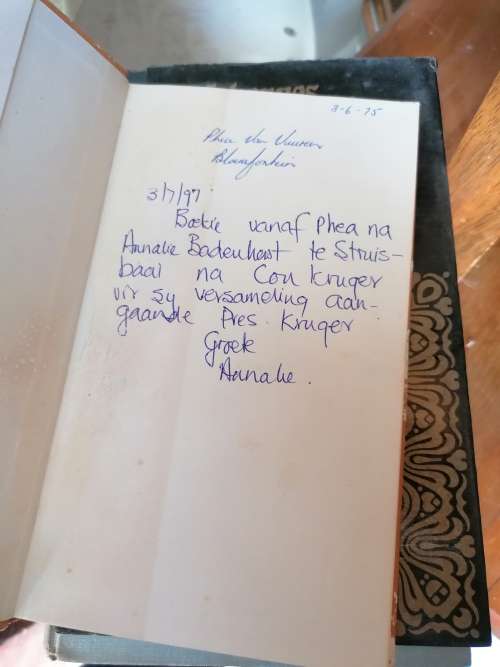 3-6-75
Phea Van Vuuren
Bloemfontein
3/7/97
Boekie vanaf Phea na
Annalie Badenhorst te Struis-
baai na Cou Kruger
vir sy versameling aan-
gaande Pres. Kruger
Groete
Annalie.